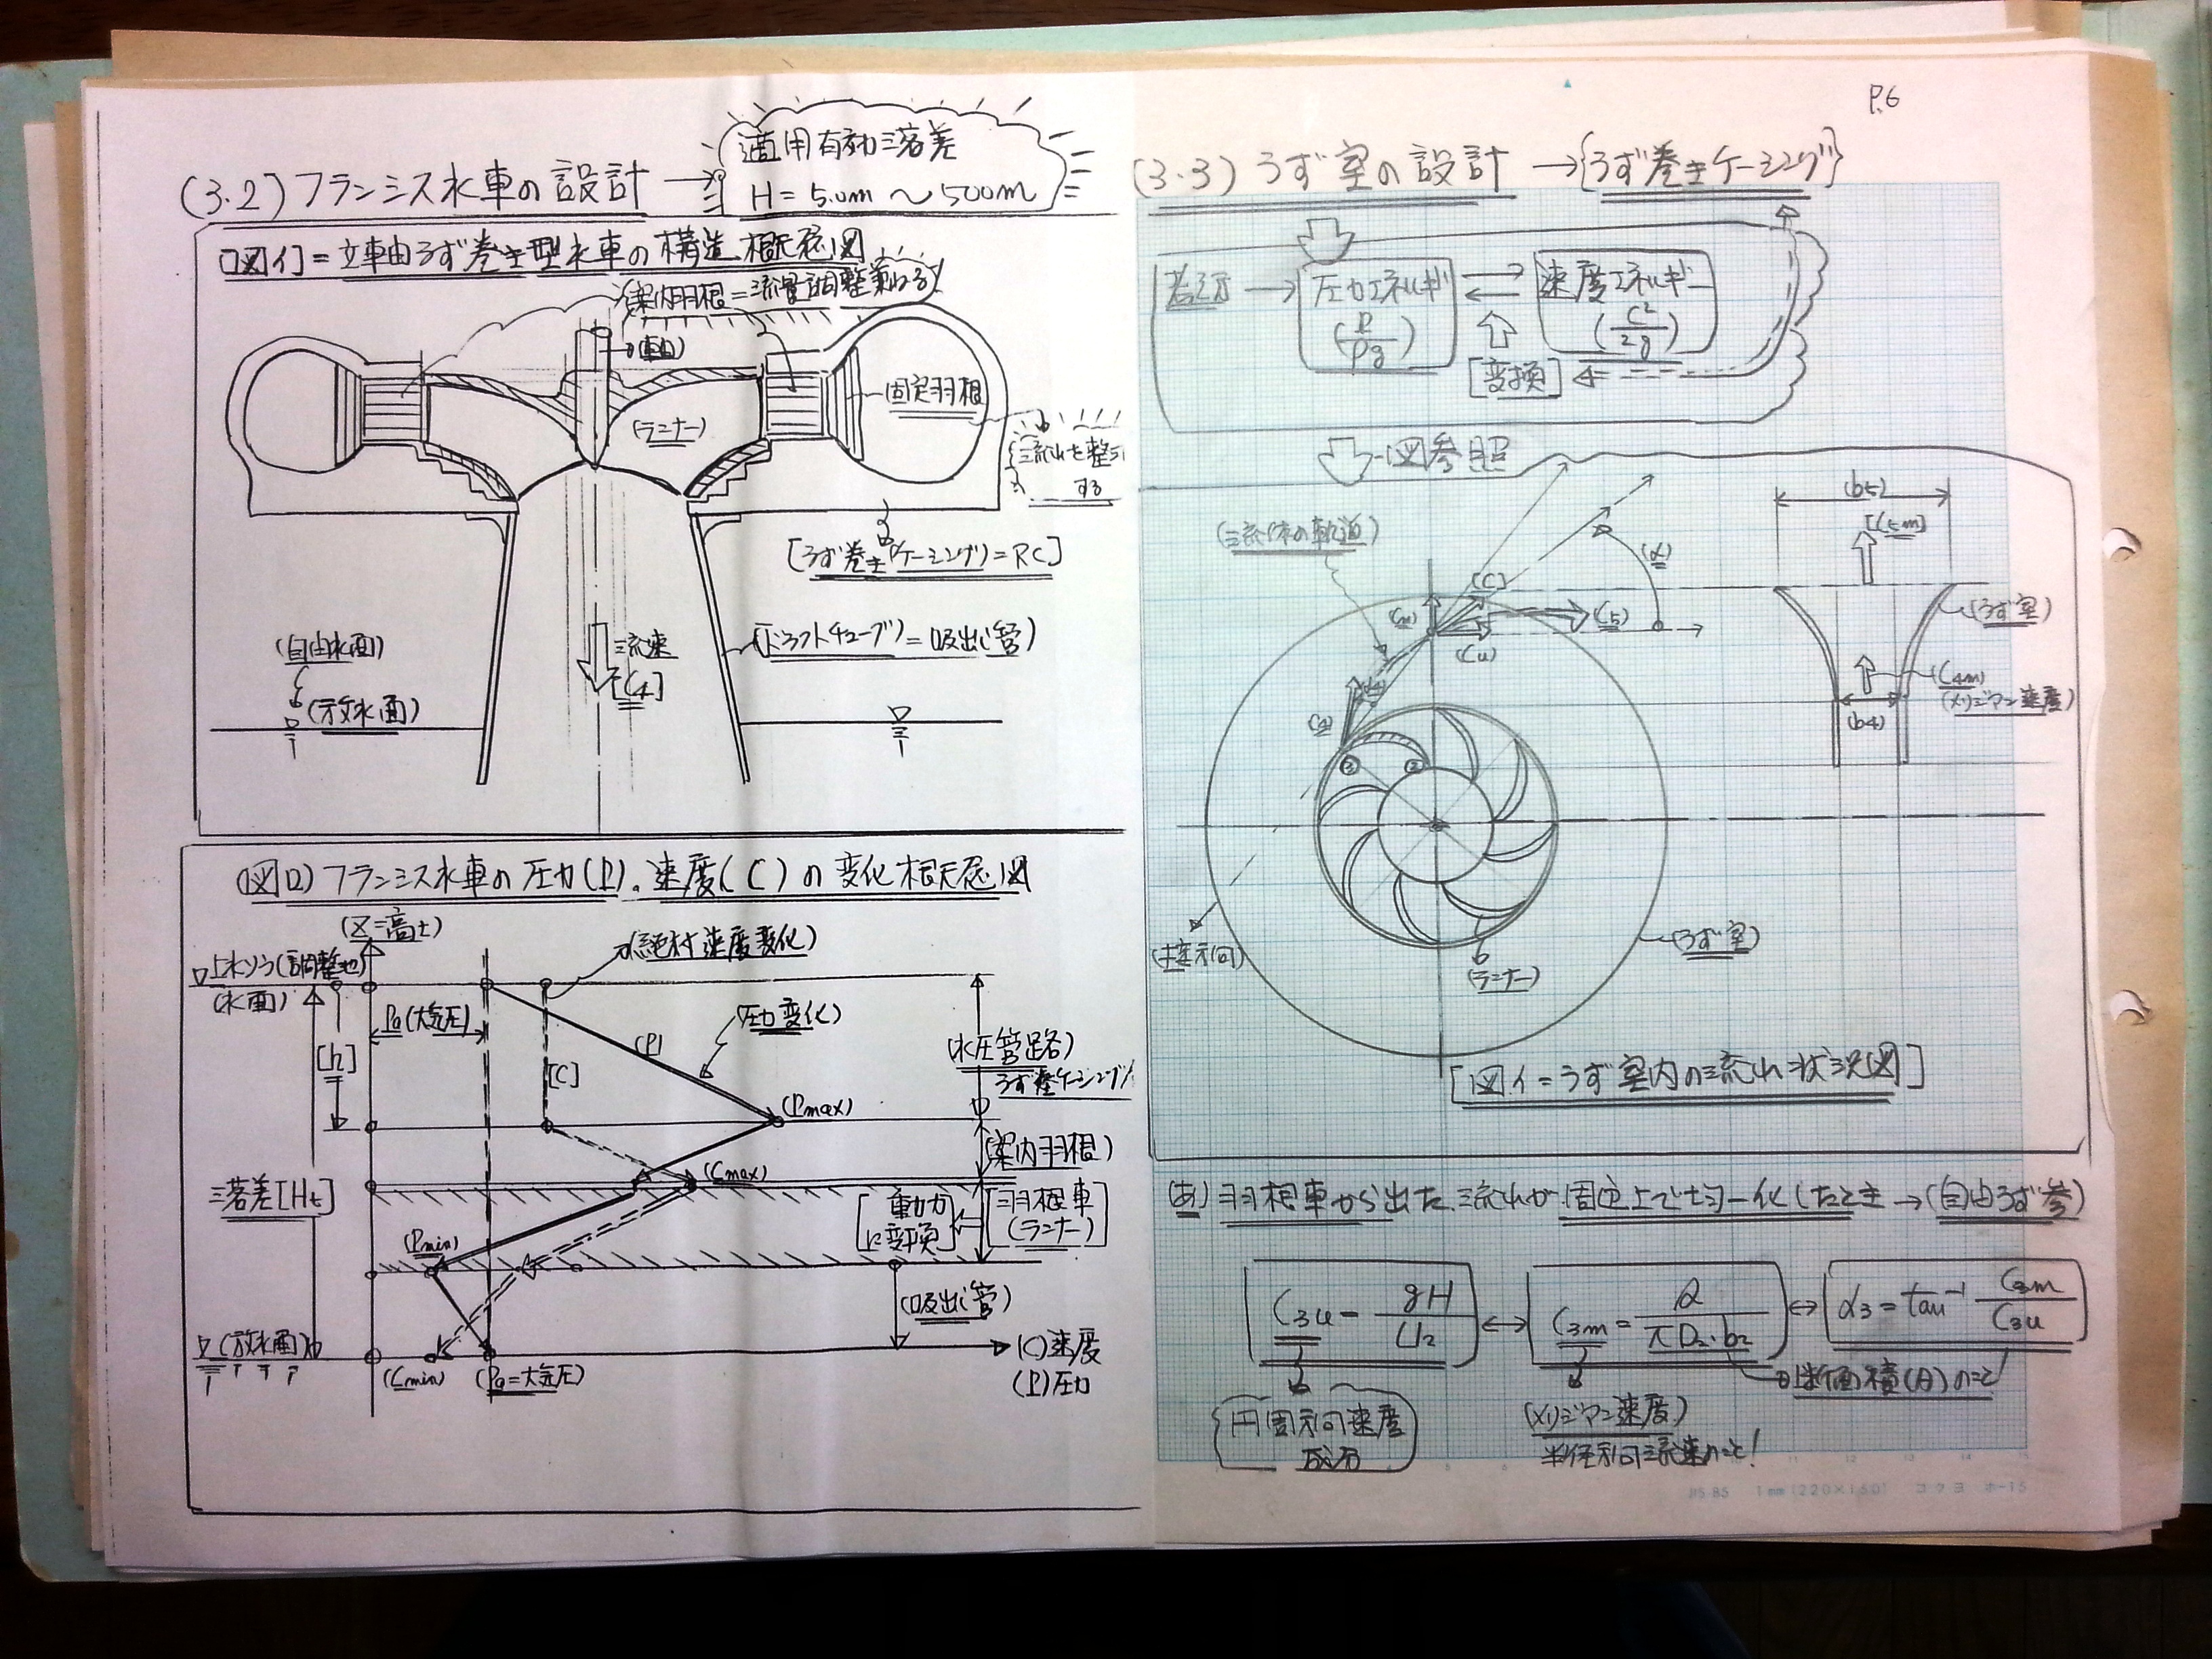 (3.2) フランシス水車の設計 →
適用有効落差
H = 5.0m 〜 500m
[図イ] = 立軸うず巻き型水車の構造概念図
(案内羽根 = 流量調整兼ねる)
(軸)
固定羽根
(ランナー)
流れを整流
する
[(うず巻きケーシング) = RC]
(自由水面)
(放水面)
流速
[C4]
(ドラフトチューブ) = 吸出し管)
(図ロ) フランシス水車の圧力(P)。速度(C)の変化概念図
(Z=高さ)
上水ソウ(調整池)
(水面)
(絶対速度変化)
Pa(大気圧)
(圧力変化)
(P)
[h]
[C]
(水圧管路)
うず巻ケーシング
(Pmax)
(案内羽根)
(Cmax)
落差[Ht]
[動力に変換]
[羽根車(ランナー)]
(Pmin)
(吸出し管)
(放水面)
(C)速度
(P)圧力
(Cmin)
(Pa=大気圧)
P.6
(3.3) うず室の設計 → {うず巻きケーシング}
圧力エネルギ
(P/ρg)
速度エネルギー
(C²/2g)
[変換]
図参照
(b5)
[C5m]
(流体の軌道)
(α)
[C]
(m)
(C5)
(Cu)
(うず室)
(C4m)
(メリジアン速度)
(b4)
(うず室)
(ランナー)
[図イ=うず室内の流れ状況図]
(あ) 羽根車から出た流れが円周上で均一化したとき → (自由うず巻)
C3u = gH/U2 ⟷ C3m = Q/πD2・b2 ⟷ α3 = tan⁻¹ C3m/C3u
断面積(A)のこと
円周方向速度
成分
(メリジアン速度)
半径方向流速のこと!
1mm (220×160) コクヨ ホ-15